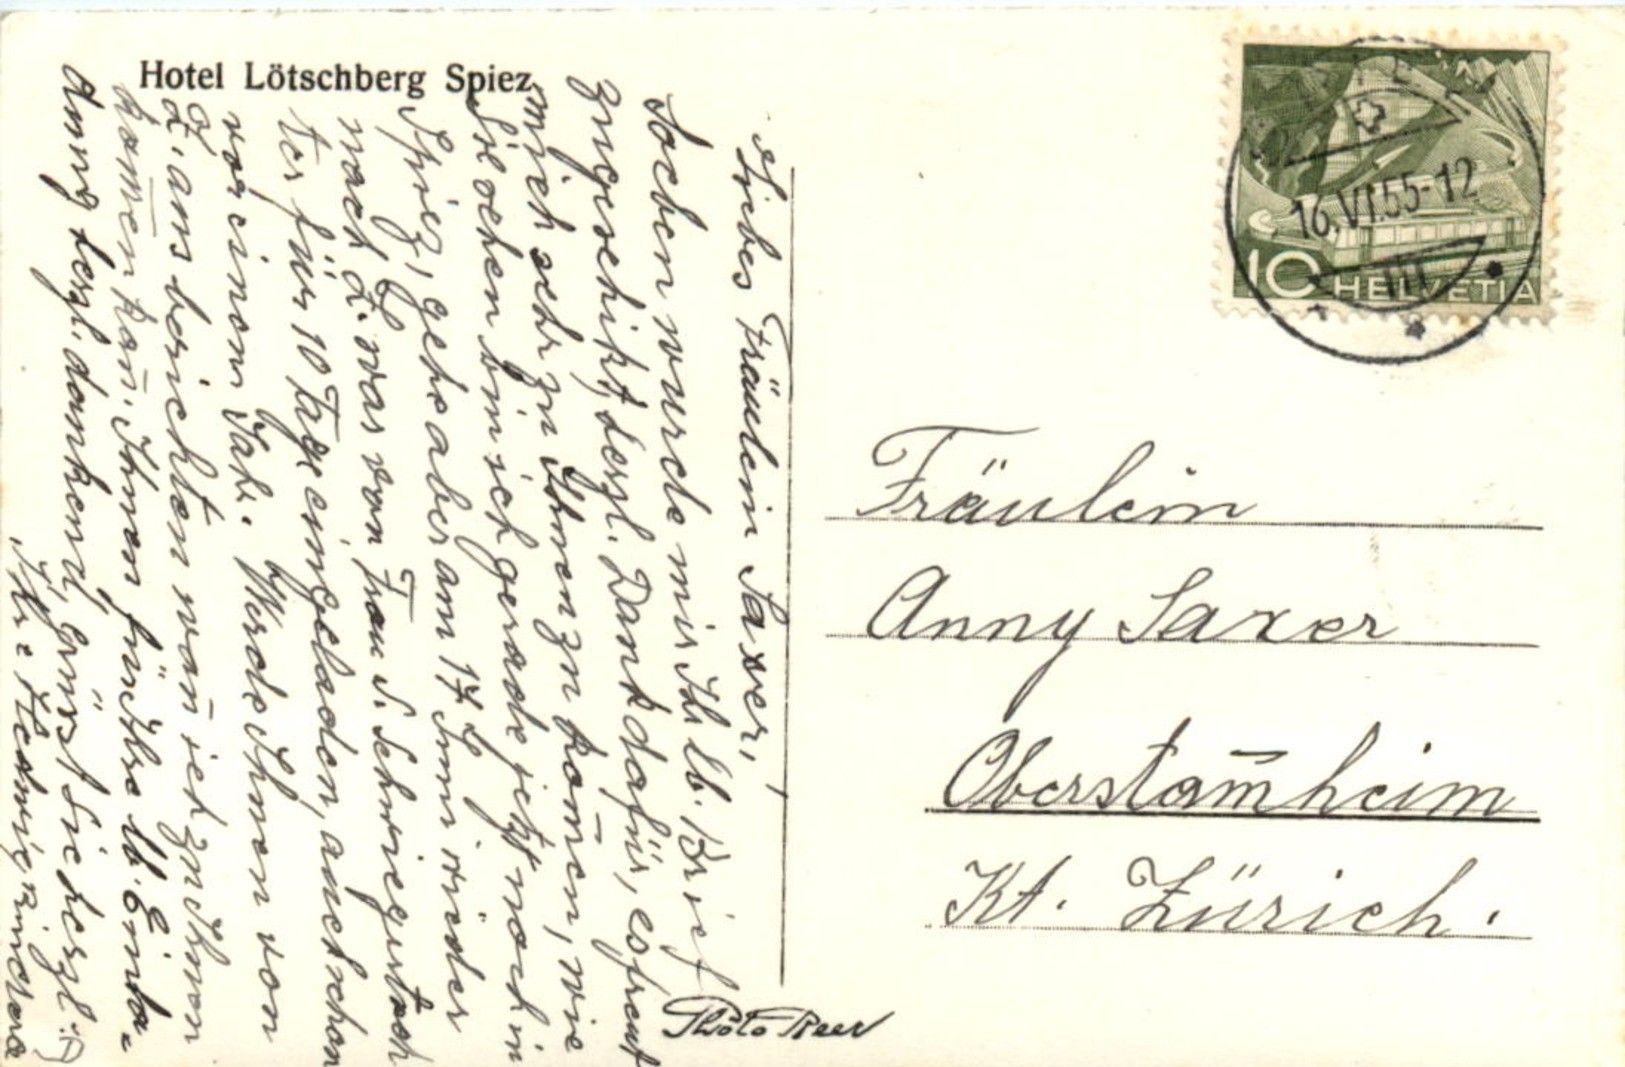 Hotel Lötschberg Spiez
Liebes Fräulein Saxer,
Soeben wurde mir Ihr lb. Brief
zugeschikt, herzl. Dank dafür, es freut
mich sehr zu Ihnen zu kom̅en, wie
Sie sehen bin ich gerade jetzt noch in
Spiez, gehe aber am 17. Juni wieder
nach Z. was von Frau S. Schwiegertoch
ter für 10 Tage eingeladen, auch schon
vor einem Jahr. Werde Ihnen von
Z. aus berichten wan̅ ich zu Ihnen
kom̅en kan̅. Ihnen für Ihre lb. Einla-
dung herzl. dankend, grüsst Sie herzl.
Ihre Hedwig
Photo Beer
16.VI.55-12
III
10 HELVETIA
Fräulein
Anny Saxer
Obersta̅mheim
Kt. Zürich.